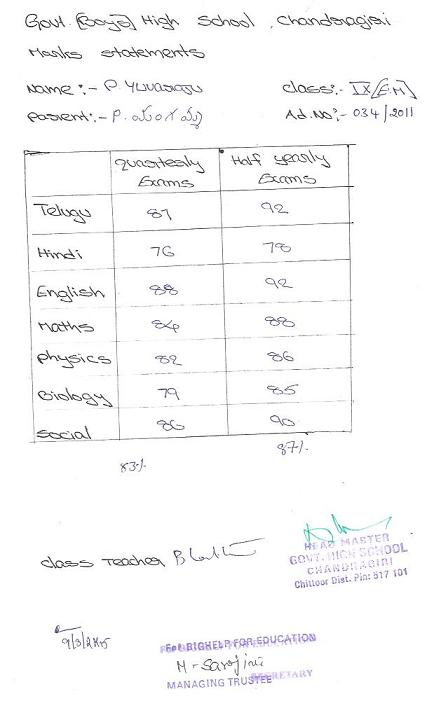 Govt. [Boys] High School, Chandragiri
Marks statements
Name :- P. Yuvaraju class:- IX[E.M]
Parent:- P. మంగమ్మ Ad.No:- 034/2011
Quarterly Exams Half yearly Exams
Telugu 81 92
Hindi 76 78
English 88 92
Maths 84 88
Physics 82 86
Biology 79 85
Social 86 90
83% 87%
HEAD MASTER
GOVT. HIGH SCHOOL
CHANDRAGIRI
Chittoor Dist. Pin: 517 101
class Teacher
For BIGHELP FOR EDUCATION
M. Sarojini
MANAGING TRUSTEE
SECRETARY